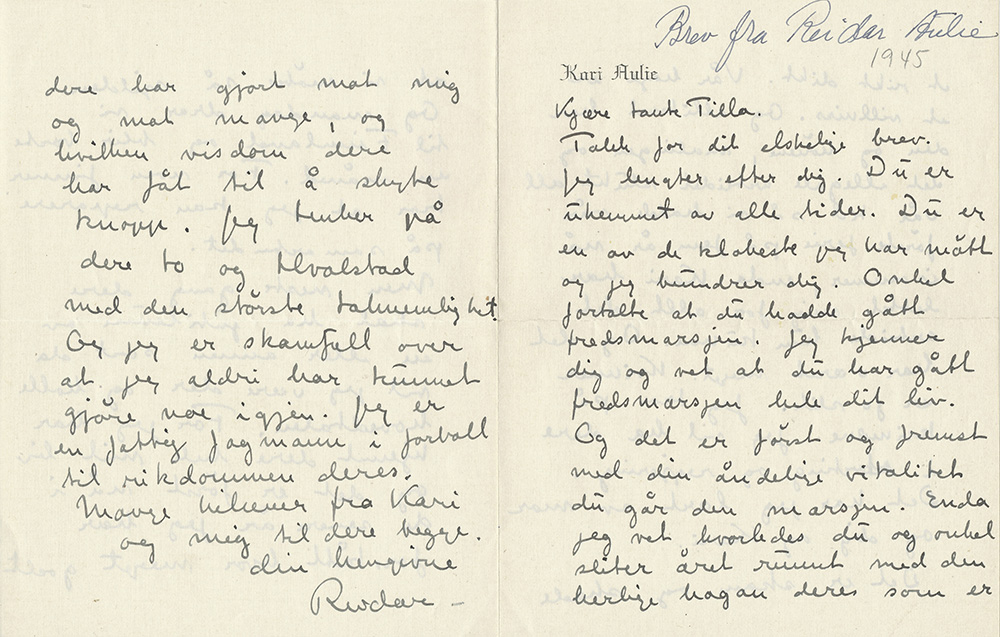 Brev fra Reidar Aulie
1945
Kari Aulie
Kjære tante Tilla.
Takk for dit elskelige brev.
Jeg lengter efter dig. Du er
uhemmet av alle tider. Du er
en av de klokeste jeg har møtt
og jeg beundrer dig. Onkel
fortalte at du hadde gått
fredsmarsjen. Jeg kjenner
dig og vet at du har gått
fredsmarsjen hele dit liv.
Og det er først og fremst
med din åndelige vitalitet
du går den marsjen. Enda
jeg vet hvorledes du og onkel
sliter året rundt med den
herlige hagan deres som er
dere har gjort mot mig
og mot mange, og
hvilken visdom dere
har fåt til å skyte
knopp. Jeg tenker på
dere to og Hvalstad
med den største taknemlighet.
Og jeg er skamfull over
at jeg aldri har kunnet
gjøre noe igjen. Jeg er
en fattig fagmann i forholl
til rikdommen deres.
Mange hilsener fra Kari
og mig til dere begge.
din hengivne
Reidar –